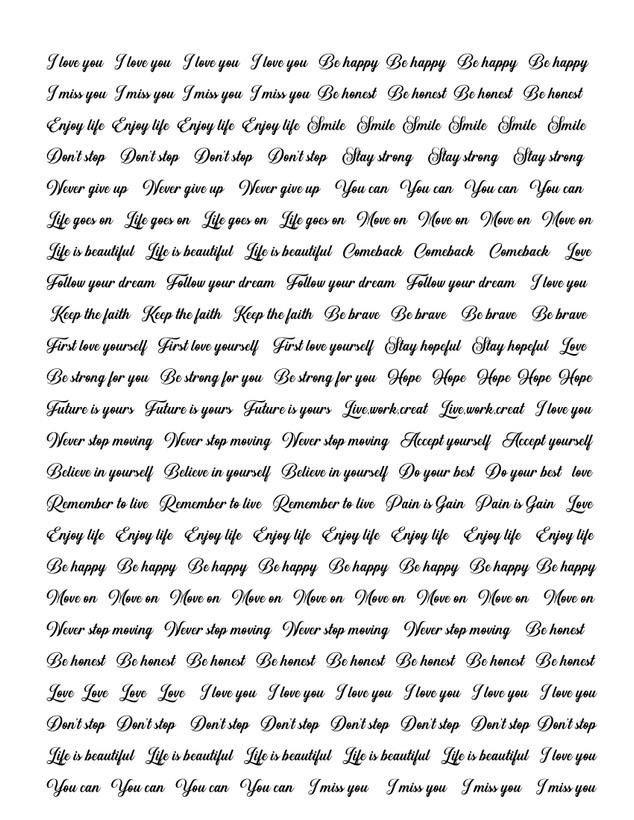 I love you I love you I love you I love you Be happy Be happy Be happy Be happy
I miss you I miss you I miss you I miss you Be honest Be honest Be honest Be honest
Enjoy life Enjoy life Enjoy life Enjoy life Smile Smile Smile Smile Smile Smile
Don't stop Don't stop Don't stop Don't stop Stay strong Stay strong Stay strong
Never give up Never give up Never give up You can You can You can You can
Life goes on Life goes on Life goes on Life goes on Move on Move on Move on Move on
Life is beautiful Life is beautiful Life is beautiful Comeback Comeback Comeback Love
Follow your dream Follow your dream Follow your dream Follow your dream I love you
Keep the faith Keep the faith Keep the faith Be brave Be brave Be brave Be brave
First love yourself First love yourself First love yourself Stay hopeful Stay hopeful Love
Be strong for you Be strong for you Be strong for you Hope Hope Hope Hope Hope
Future is yours Future is yours Future is yours Live,work,creat Live,work,creat I love you
Never stop moving Never stop moving Never stop moving Accept yourself Accept yourself
Believe in yourself Believe in yourself Believe in yourself Do your best Do your best love
Remember to live Remember to live Remember to live Pain is Gain Pain is Gain Love
Enjoy life Enjoy life Enjoy life Enjoy life Enjoy life Enjoy life Enjoy life Enjoy life
Be happy Be happy Be happy Be happy Be happy Be happy Be happy Be happy
Move on Move on Move on Move on Move on Move on Move on Move on Move on
Never stop moving Never stop moving Never stop moving Never stop moving Be honest
Be honest Be honest Be honest Be honest Be honest Be honest Be honest Be honest
Love Love Love Love I love you I love you I love you I love you I love you I love you
Don't stop Don't stop Don't stop Don't stop Don't stop Don't stop Don't stop Don't stop
Life is beautiful Life is beautiful Life is beautiful Life is beautiful Life is beautiful I love you
You can You can You can You can I miss you I miss you I miss you I miss you